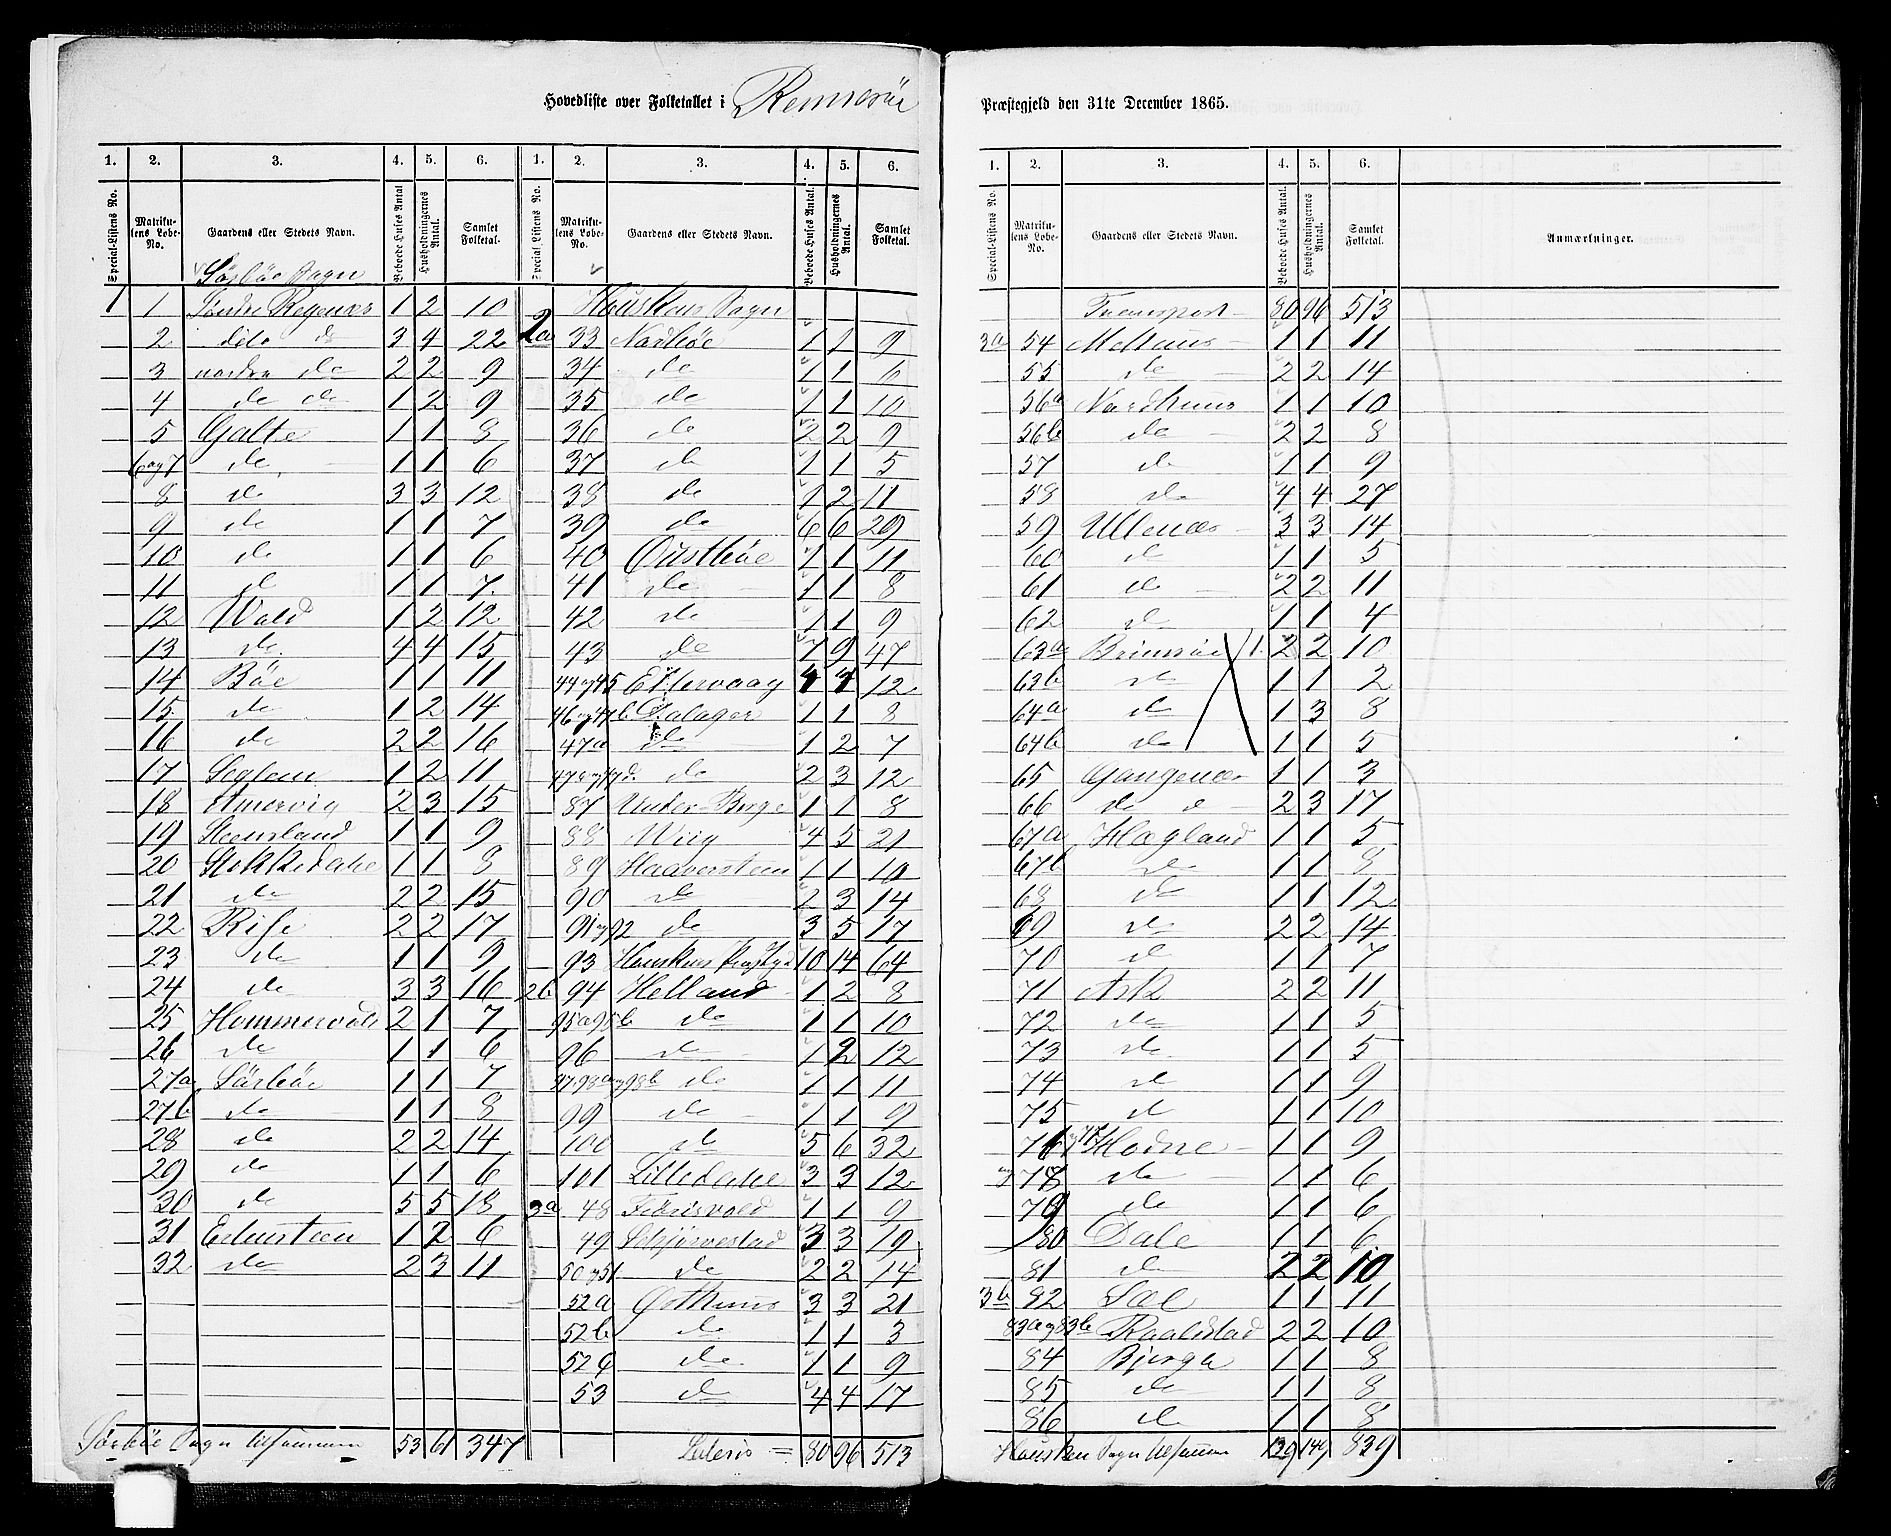 Hovedliste over Folketallet i Rennesöe Præstegjeld den 31te December 1865.
1. 2. 3. 4. 5. 6. 1. 2. 3. 4. 5. 6.
Special-Listens No. Matrikulens Løbe-No. Gaardens eller Stedets Navn. Beboede Huses Antal Husholdningernes Antal. Samlet Folketal. Special-Listens No. Matrikulens Løbe-No. Gaardens eller Stedets Navn. Beboede Huses Antal. Husholdningernes Antal. Samlet Folketal.
Sörböe Sogn
1 1 Söndre Regenæs 1 2 10
2 dito do 3 4 22
3 nordre do 2 2 9
4 do do 1 2 9
5 Galte 1 1 8
6 og 7 do 1 1 6
8 do 3 3 12
9 do 1 1 7
10 do 1 1 6
11 do 1 1 7
12 Wold 1 2 12
13 do 4 4 15
14 Böe 1 1 11
15 do 1 2 14
16 do 2 2 16
17 Seglem 1 2 11
18 Amervig 2 3 15
19 Steensland 1 1 9
20 Stokkedahe 1 1 8
21 do 2 2 15
22 Rise 2 2 17
23 do 1 1 9
24 do 3 3 16
25 Hommervold 2 1 7
26 do 1 1 6
27a Sörböe 1 1 7
27b do 1 1 8
28 do 2 2 14
29 do 1 1 6
30 do 5 5 18
31 Edensteen 1 2 6
32 do 2 3 11
Sörböe Sogn tilsammen 53 61 347
Houskens Sogn
2a 33 Nordböe 1 1 9
34 do 1 1 6
35 do 1 1 10
36 do 2 2 9
37 do 1 1 5
38 do 1 2 11
39 do 6 6 29
40 Östböe 1 1 11
41 do 1 1 8
42 do 1 1 9
43 do 7 9 47
44 og 45 Eltervaag 12
46 og 47b Dalager 1 1 8
47a do 1 2 7
47c og 47d do 2 3 12
87 Under Berge 1 1 8
88 Wiig 4 5 21
89 Haaversteen 1 1 10
90 do 2 3 14
91 og 92 do 3 5 17
93 Houskens 10 14 64
2b 94 Helland 1 2 8
95a 95b do 1 1 10
96 do 1 2 12
97 98a og 98b do 1 1 11
99 do 1 1 9
100 do 5 6 32
101 Lilledahe 3 3 12
3a 48 Fööisvold 1 1 9
49 Schjörvestad 3 3 19
50 og 51 do 2 2 14
52a Östhuus 3 3 21
52b do 1 1 3
52c do 1 1 9
53 do 4 4 17
Lateris = 80 96 513
1. 2. 3. 4. 5. 6.
Special-Listens No. Matrikulens Løbe-No. Gaardens eller Stedets Navn. Beboede Huses Antal. Husholdningernes Antal. Samlet Folketal. Anmærkninger.
Transport 80 96 513
3a 54 Meltuus 1 1 11
55 do 2 2 14
56a Nordhuus 1 1 10
56b do 2 2 8
57 do 1 1 9
58 do 4 4 27
59 Ullenæs 3 3 14
60 do 1 1 5
61 do 2 2 11
62 do 1 1 4
63a Brimsöe 2 2 10
63b do 1 1 2
64a do 1 3 8
64b do 1 1 5
65 Gangenæs 1 1 3
66 do 2 3 17
67a Hægland 1 1 5
67b do 1 1 8
68 do 1 1 12
69 do 2 2 14
70 do 1 1 7
71 Ask 2 2 11
72 do 1 1 5
73 do 1 1 5
74 do 1 1 9
75 do 1 1 10
76 og 77 Hodne 1 1 9
78 do 1 1 6
79 do 1 1 6
80 Dale 1 1 6
81 do 2 2 10
3b 82 Sæl 1 1 11
83a og 83b Raalstad 2 2 10
84 Bjerga 1 1 8
85 do 1 1 8
86 do 1 1 8
Housken Sogn tilsammen 139 149 839